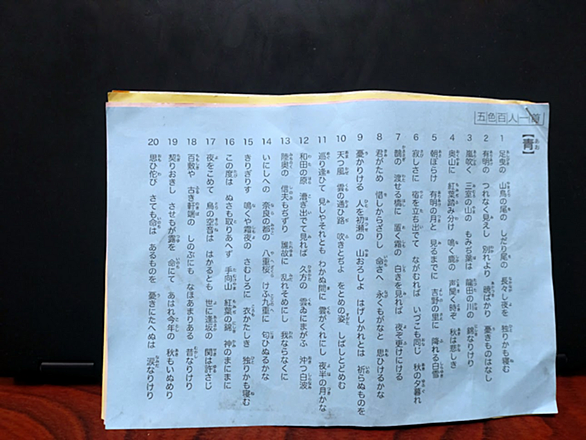 五色百人一首
【青】
1 足曳の 山鳥の尾の しだり尾の 長長し夜を 独りかも寝む
2 有明の つれなく見えし 別れより 暁ばかり 憂きものはなし
3 嵐吹く 三室の山の もみぢ葉は 龍田の川の 錦なりけり
4 奥山に 紅葉踏み分け 鳴く鹿の 声聞く時ぞ 秋は悲しき
5 朝ぼらけ 有明の月と 見るまでに 吉野の里に 降れる白雪
6 寂しさに 宿を立ち出でて ながむれば いづこも同じ 秋の夕暮れ
7 鵲の 渡せる橋に 置く霜の 白きを見れば 夜ぞ更けにける
8 君がため 惜しからざりし 命さへ 永くもがなと 思ひけるかな
9 憂かりける 人を初瀬の 山おろしよ はげしかれとは 祈らぬものを
10 天つ風 雲の通ひ路 吹きとぢよ をとめの姿 しばしとどめむ
11 巡り逢ひて 見しやそれとも わかぬ間に 雲がくれにし 夜半の月かな
12 和田の原 漕ぎ出でて見れば 久方の 雲ゐにまがふ 沖つ白波
13 陸奥の 信夫もぢずり 誰故に 乱れそめにし 我ならなくに
14 いにしへの 奈良の都の 八重桜 けふ九重に 匂ひぬるかな
15 きりぎりす 鳴くや霜夜の さむしろに 衣かたしき 独りかも寝む
16 この度は ぬさも取りあへず 手向山 紅葉の錦 神のまにまに
17 夜をこめて 鳥の空音は はかるとも 世に逢坂の 関は許さじ
18 百敷や 古き軒端の しのぶにも なほあまりある 昔なりけり
19 契りおきし させもが露を 命にて あはれ今年の 秋もいぬめり
20 思ひ侘び さても命は あるものを 憂きにたへぬは 涙なりけり